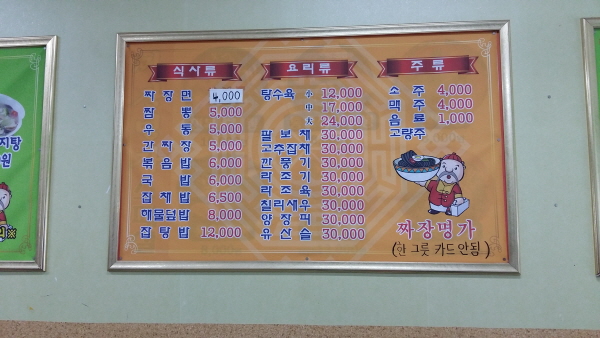 식사류
짜장면 4,000
짬뽕 5,000
우동 5,000
간짜장 5,000
볶음밥 6,000
국밥 6,000
잡채밥 6,500
해물덮밥 8,000
잡탕밥 12,000
요리류
탕수육 小 12,000
中 17,000
大 24,000
팔보채 30,000
고추잡채 30,000
깐풍기 30,000
라조기 30,000
라조육 30,000
칠리새우 30,000
양장피 30,000
유산슬 30,000
주류
소주 4,000
맥주 4,000
음료 1,000
고량주
짜장명가
(한 그릇 카드 안됨)
지탕
원